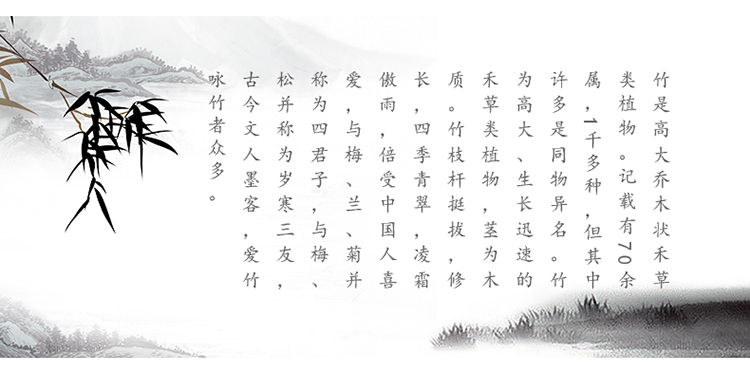 竹是高大乔木状禾草
类植物。记载有70余
属,1千多种,但其中
许多是同物异名。竹
为高大、生长迅速的
禾草类植物,茎为木
质。竹枝杆挺拔,修
长,四季青翠,凌霜
傲雨,倍受中国人喜
爱,与梅、兰、菊并
称为四君子,与梅、
松并称为岁寒三友,
古今文人墨客,爱竹
咏竹者众多。